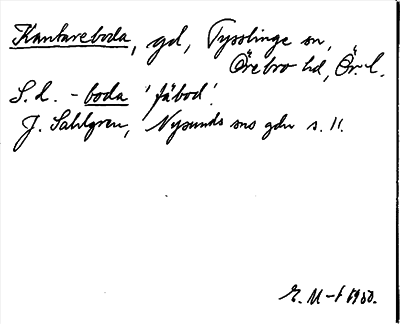 Kantareboda, gd, Tysslinge sn,
Örebro hd, Ör. l.
S. l. -boda 'fäbod'.
J. Sahlgren, Nysunds sns gdn s. 11.
E. M-t 1930.